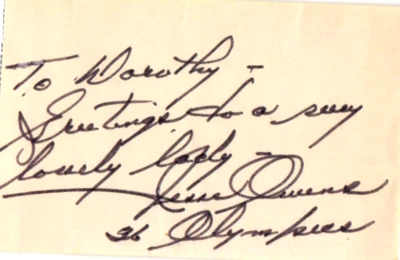 To Dorothy -
Greetings to a very
lovely lady -
Jesse Owens
36 Olympics